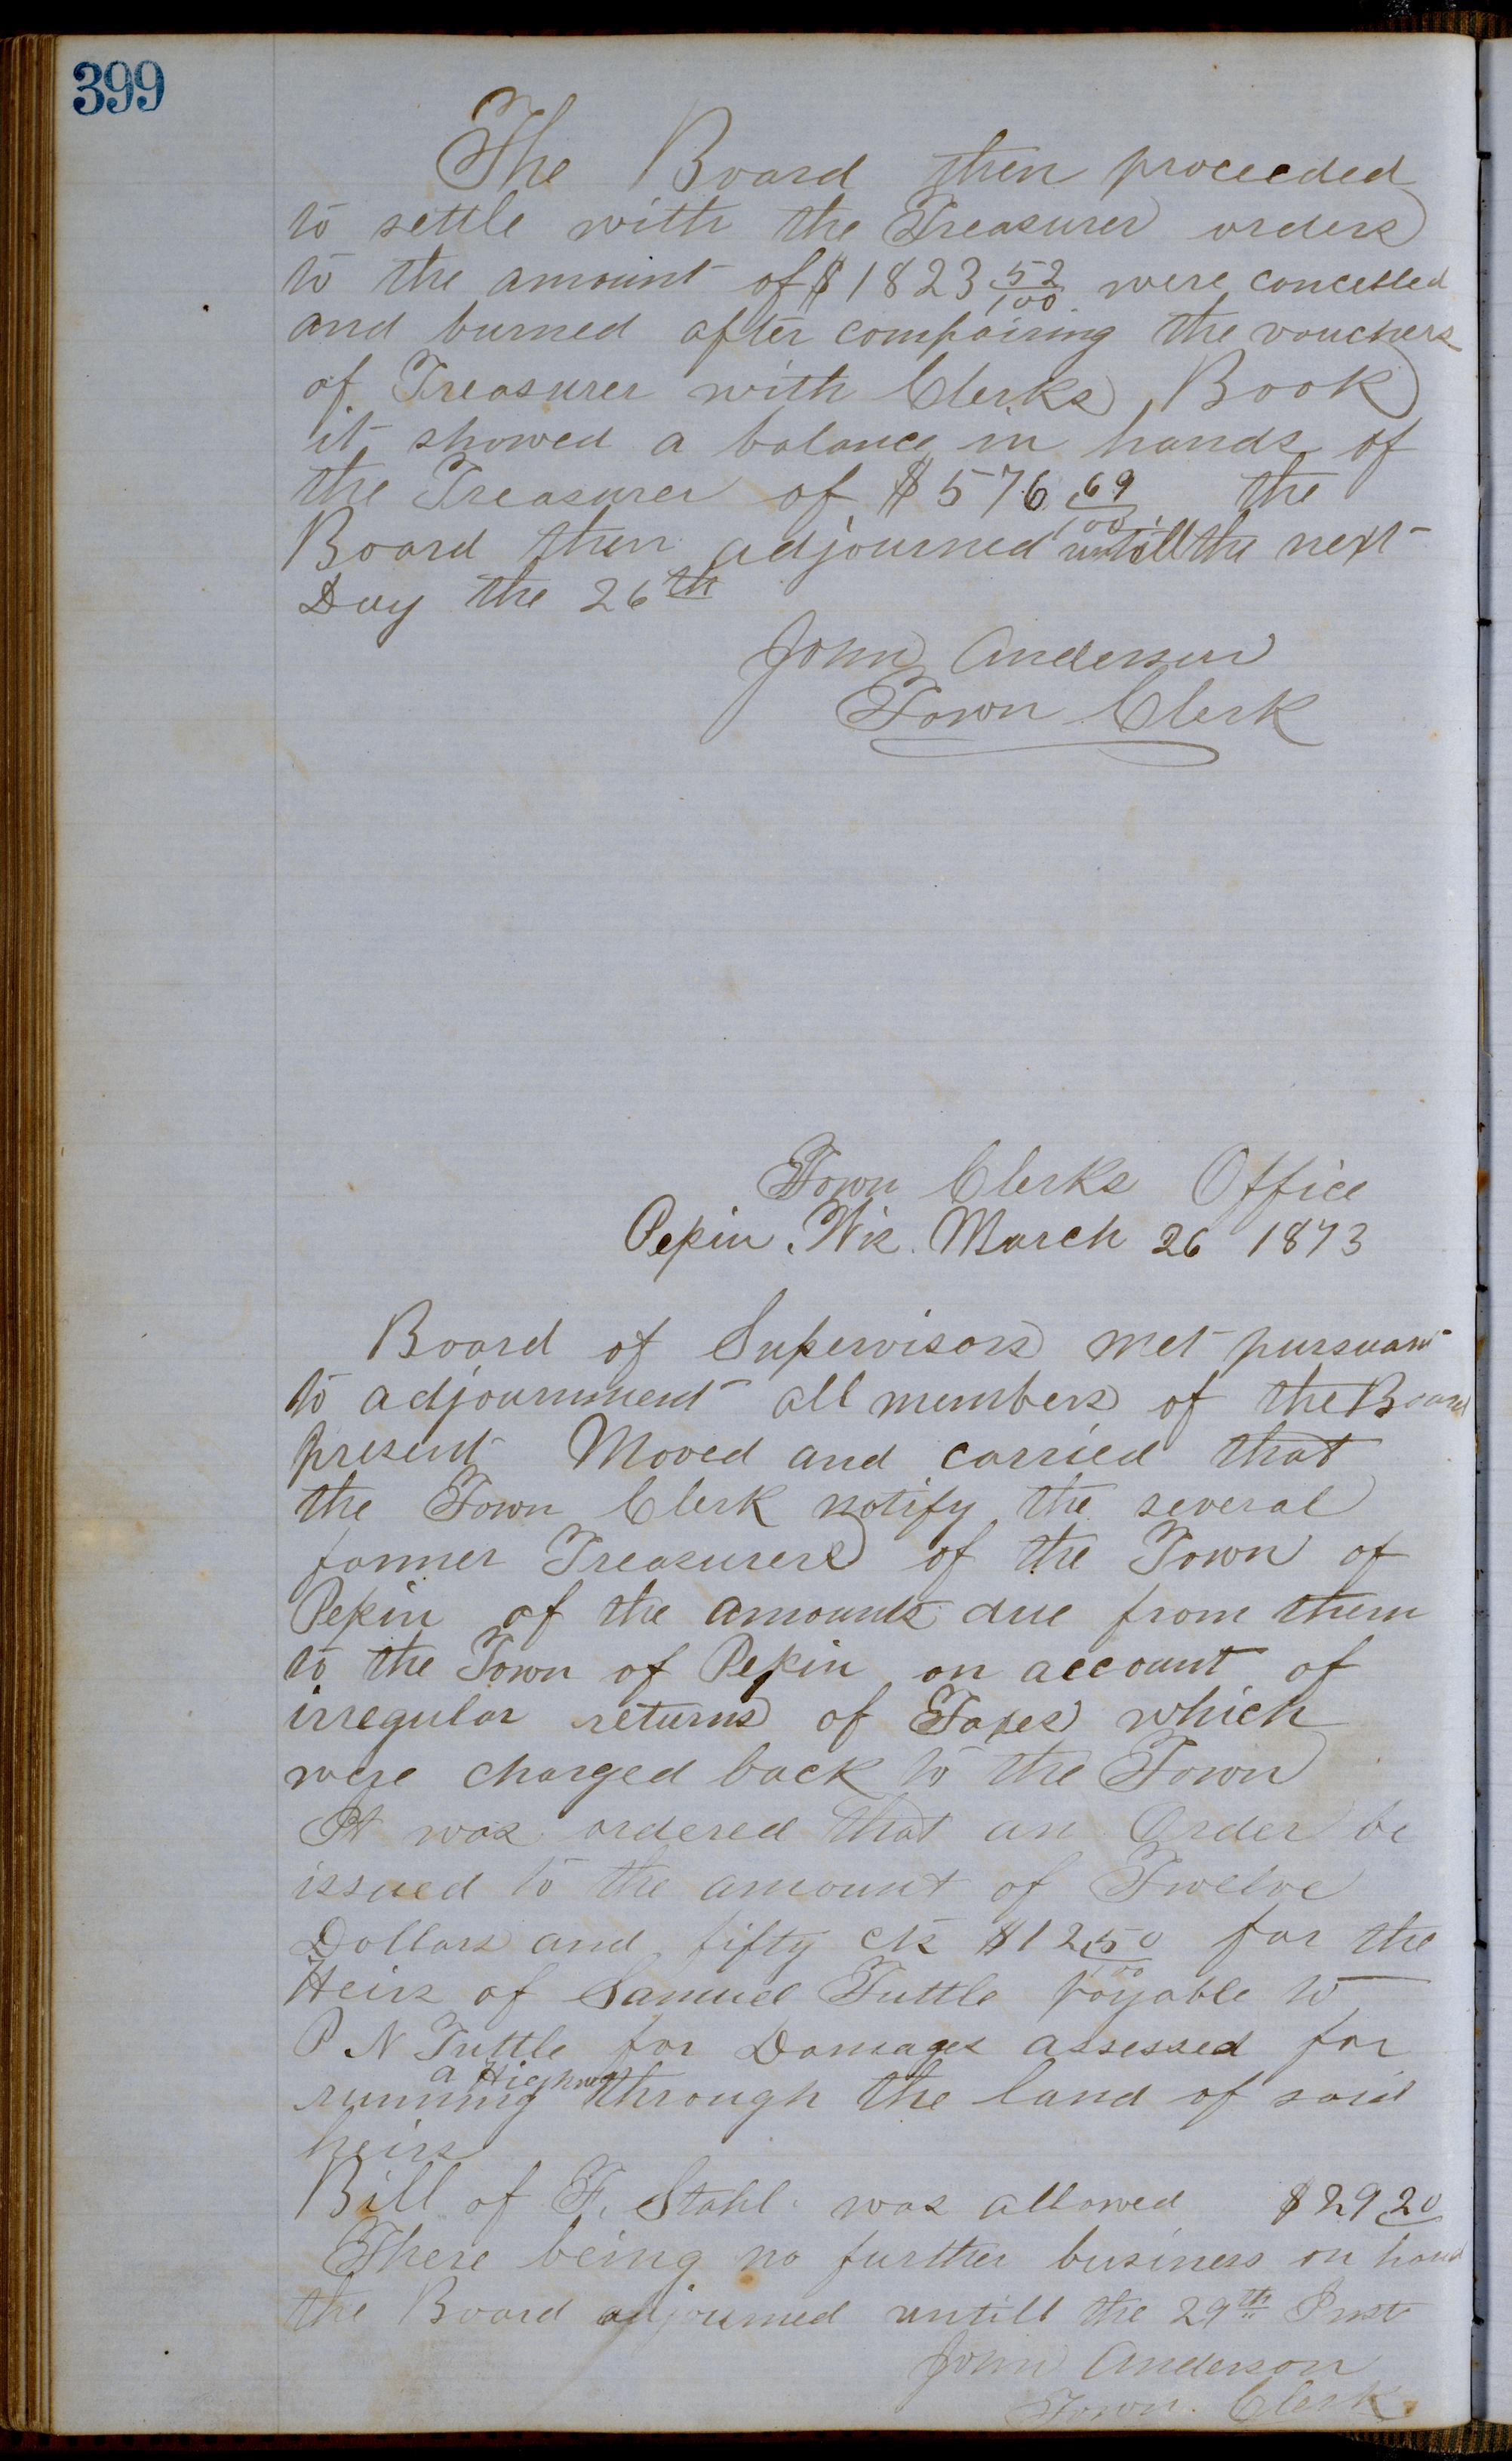 399
The Board then proceeded
to settle with the Treasurer orders
to the amount of $1823 52/100 were cancelled
and burned after compairing the vouchers
of Treasurer with Clerks Book
it showed a balance in hands of
the Treasurer of $576 69/100 the
Board then adjourned untill the next
Day the 26th
John Anderson
Town Clerk
Town Clerks Office
Pepin. Wis. March 26 1873
Board of Supervisors met pursuant
to adjournment all members of the Board
present Moved and carried that
the Town Clerk notify the several
former Treasurers of the Town of
Pepin of the amounts due from them
to the Town of Pepin on account of
irregular returns of Taxes which
were charged back to the Town
It was ordered that an Order be
issued to the amount of Twelve
Dollars and fifty cts $12 50/100 for the
Heirs of Samuel Tuttle payable to
P N Tuttle for Damages assessed for
a Highway
running through the land of said
heirs
Bill of F. Stahl was allowed $29 20
There being no further business on hand
the Board adjourned untill the 29th Inst
John Anderson
Town Clerk